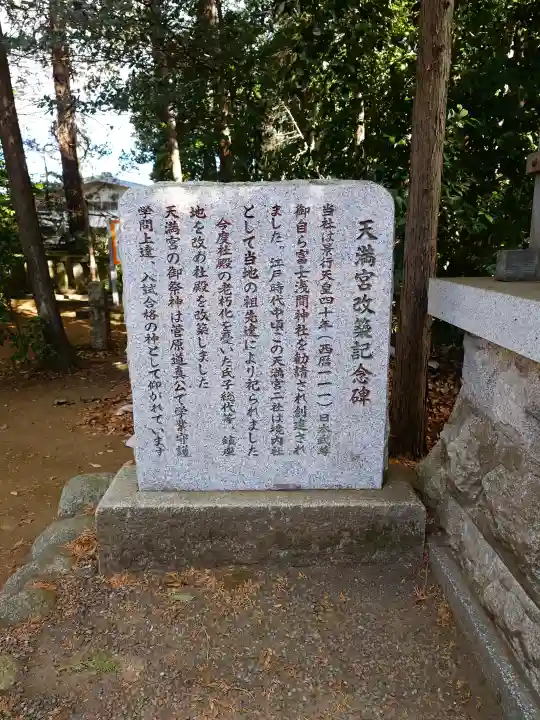 天満宮改築記念碑
当社は景行天皇四十年(西暦一一一)日本武尊
御自ら富士浅間神社を勧請され創造され
ました。江戸時代中頃この天満宮二社は境内社
として当地の祖先達により祀られました
今度社殿の老朽化を憂いた氏子総代等、鎮座
地を改め社殿を改築しました
天満宮の御祭神は菅原道真公で学業守護
学問上達、入試合格の神として仰がれています